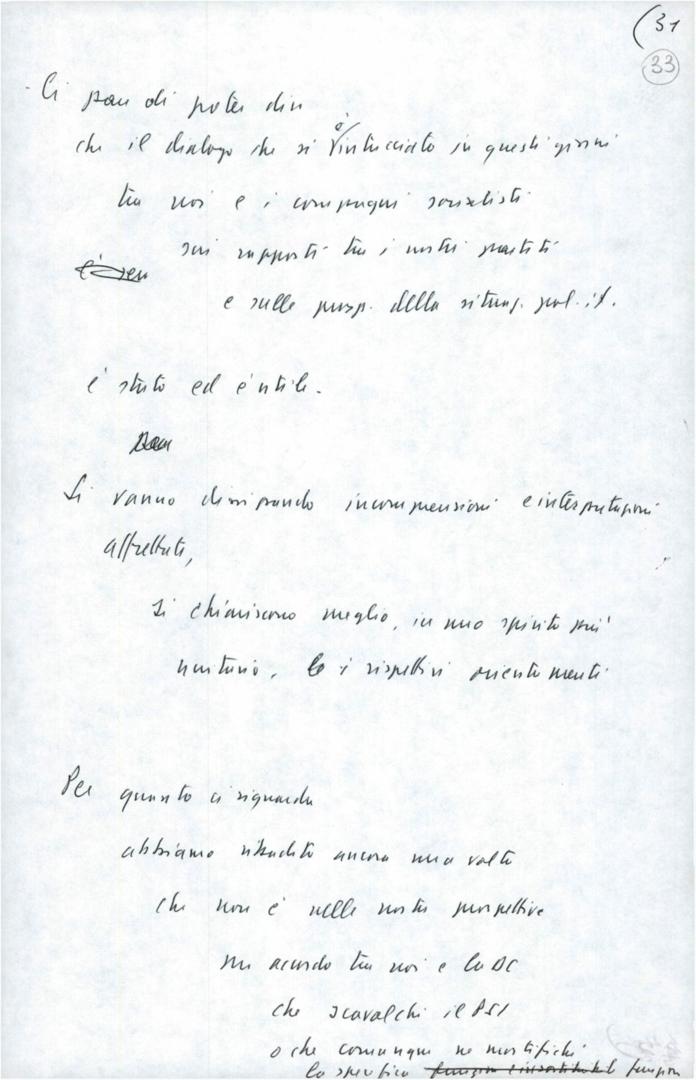 (31
33
Ci pare di poter dire
che il dialogo che si è intrecciato in questi giorni
tra noi e i compagni socialisti
sui rapporti tra i nostri partiti
e sulle prosp. della situaz. pol. it.
è stato ed è utile.
Si vanno dissipando incomprensioni e interpretazioni
affrettate,
si chiariscono meglio, in uno spirito più
unitario, i rispettivi orientamenti
Per quanto ci riguarda
abbiamo ribadito ancora una volta
che non è nelle nostre prospettive
un accordo tra noi e la DC
che scavalchi il PSI
o che comunque ne mortifichi
la specifica funzione